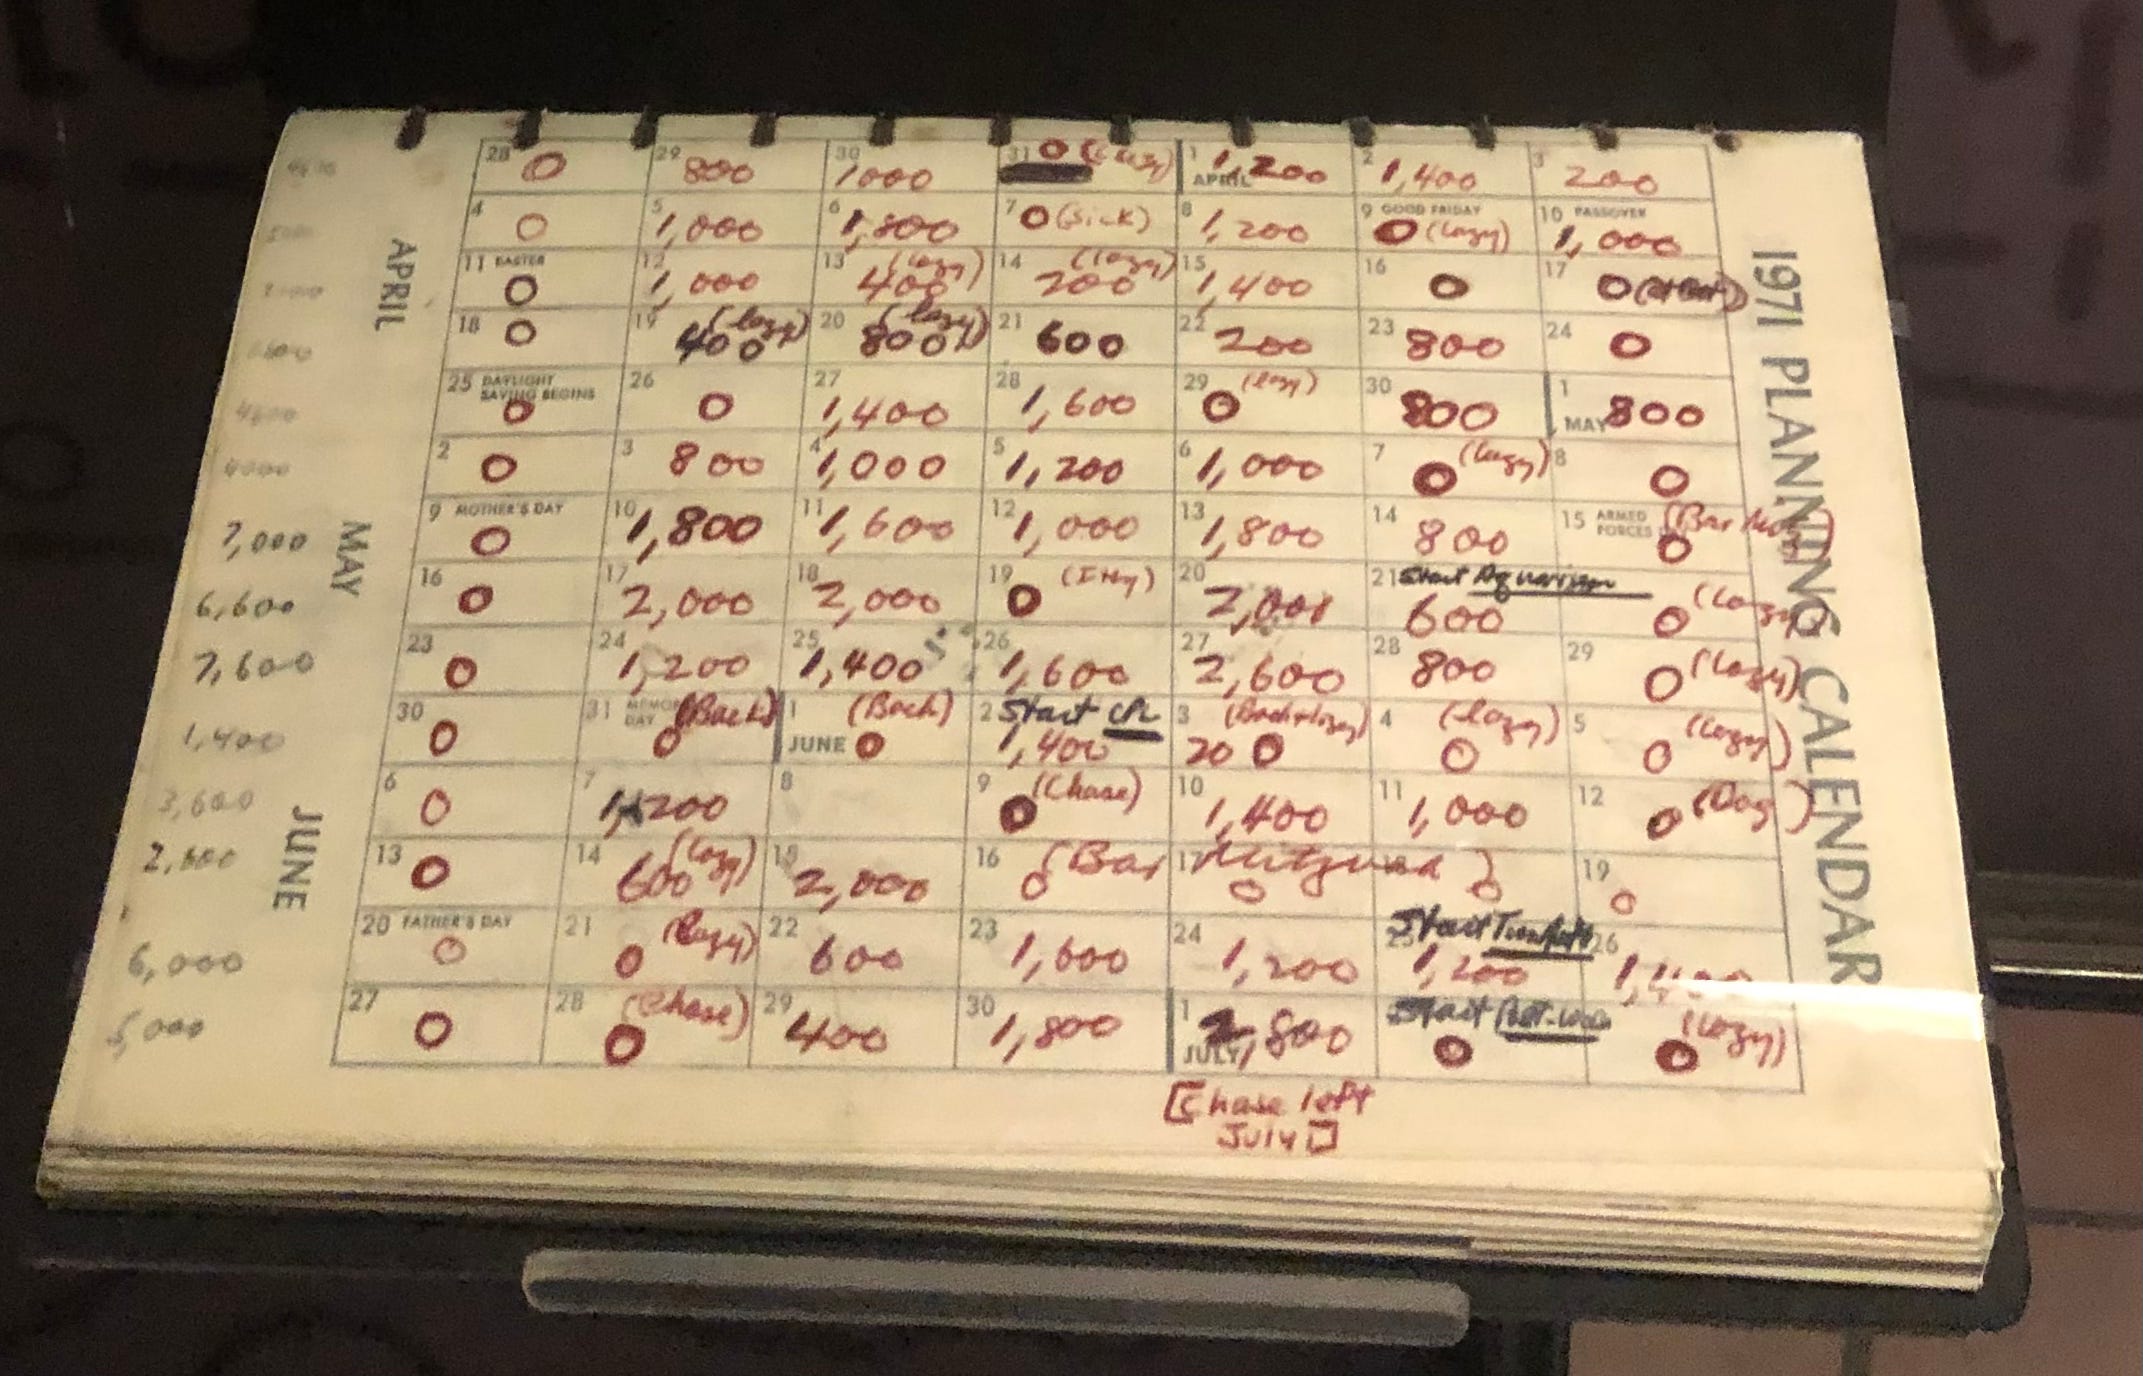 1971 PLANNING CALENDAR
APRIL
MAY
JUNE
28 0 29 800 30 1000 31 0 (Lazy) 1 APRIL 1,200 2 1,400 3 200
4 0 5 1,000 6 1,800 7 0 (Sick) 8 1,200 9 GOOD FRIDAY 0 (Lazy) 10 PASSOVER 1,000
11 EASTER 0 12 1,000 13 (lazy) 400 14 (lazy) 200 15 1,400 16 0 17 0
18 0 19 (lazy) 400 20 (lazy) 800 21 600 22 200 23 800 24 0
4600 25 DAYLIGHT SAVING BEGINS 0 26 0 27 1,400 28 1,600 29 0 (lazy) 30 800 1 MAY 800
4000 2 0 3 800 4 1,000 5 1,200 6 1,000 7 0 (Lazy) 8 0
7,000 9 MOTHER'S DAY 0 10 1,800 11 1,600 12 1,000 13 1,800 14 800 15 ARMED FORCES (Bar 0
6,600 16 0 17 2,000 18 2,000 19 0 20 2,000 21 Start Aquarius 600 0 (Lazy)
7,600 23 0 24 1,200 25 1,400 26 1,600 27 2,600 28 800 29 0 (Lazy)
1,400 30 0 31 MEMOR DAY (Back) 0 1 JUNE (Back) 0 2 Start 1,400 3 (Back + lazy) 20 0 4 (lazy) 0 5 (Lazy) 0
3,600 6 0 7 1,200 8 9 (Chase) 0 10 1,400 11 1,000 12 (Dog) 0
2,600 13 0 14 (lazy) 600 15 2,000 16 (Bar 0 17 Mitzvah) 0 0 19 0
6,000 20 FATHER'S DAY 0 21 (Lazy) 0 22 600 23 1,600 24 1,200 25 Start 1,200 26 1,400
5,000 27 0 28 (Chase) 0 29 400 30 1,800 1 JULY 2,800 Start 0 (Lazy) 0
[Chase left
July 1]